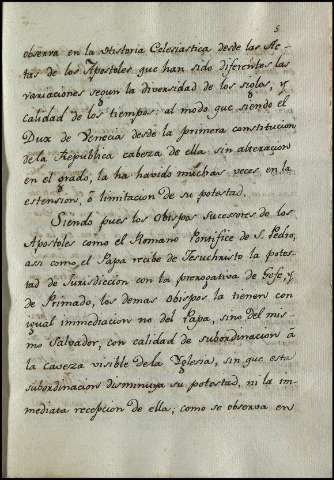 5
observa en la Historia Eclesiastica desde las Ac-
tas de los Apostoles que han sido diferentes las
variaciones segun la diversidad de los siglos, y
calidad de los tiempos: al modo que siendo el
Dux de Venecia desde la primera constitucion
de la Republica cabeza de ella sin alteracion
en el grado, la ha havido muchas veces en la
estension, ô limitacion de su potestad.
Siendo pues los Obispos sucesores de los
Apostoles como el Romano Pontifice de S. Pedro,
assi como el Papa recibe de Jesuchristo la potes-
tad de Jurisdiccion con la prerogativa de Gefe, y
de Primado, los demas obispos la tienen con
igual immediacion no del Papa, sino del mis-
mo Salvador, con calidad de subordinacion â
la caveza visible de la Yglesia, sin que esta
subordinacion disminuya su potestad, ni la im-
mediata recepcion de ella; como se observa en